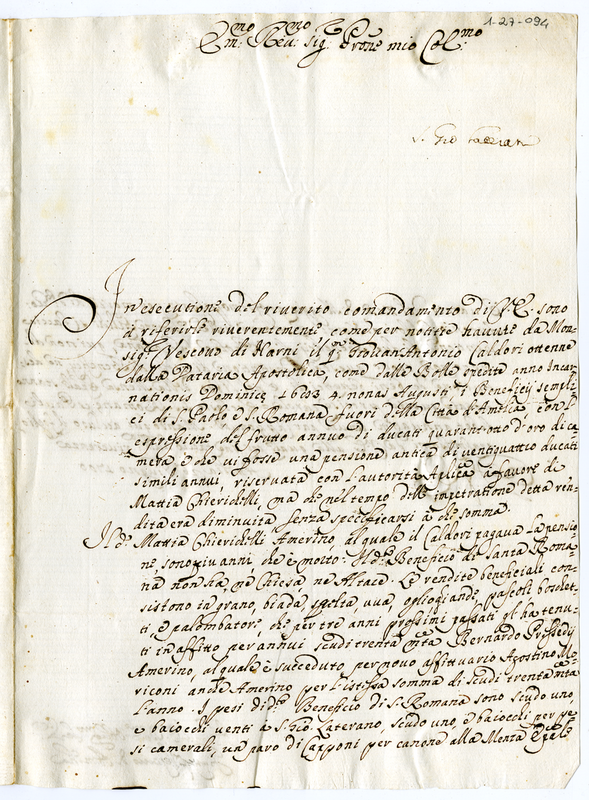 1-27-094
Em:mo Reu:mo Sig: Prone mio Col:mo
S. Gio Laterano
In esecutione del riuerito comandamento di V.E. sono
à riferirle riuerentemente come per notitie hauute da Mon-
sig.r Vescouo di Narni il q.m Giouan Antonio Caldori ottenne
dalla Dataria Apostolica, come dalle Bolle spedite anno Incar-
nationis Dominicę 1603 4. nonas Augusti, i Beneficij sempli-
ci di S. Paolo e S. Romana fuori della Città d'Amelia con l'
espressione del frutto annuo di ducati quarantotto d'oro di ca
mera è che vi fosse una pensione antica di ventiquattro ducati
simili annui, riseruata con l'autorità Aplica à fauore di
Mattia Chieridelli, ma che nel tempo dell' impetratione detta ren-
dita era diminuita senza specificarsi à che somma.
Il d.o Mattia Chieridelli Amerino, al quale il Caldori pagaua la pensio-
ne, sono più anni, che è morto: Il d.o Beneficio di Santa Roma-
na non hà, ne Chiesa, ne Altare. Le rendite beneficiali con-
sistono in grano, biada, spelta, uua, oglio, giande, pascoli boschet-
ti, e palombatore, che per tre anni prossimi passati gl'ha tenu-
ti in affitto per annui scudi trenta m.ta Bernardo
Amerino, al quale è succeduto per nouo affittuario Agostino Mo-
riconi anche Amerino per l'istessa somma di scudi trenta m.ta
l'anno. I pesi di d.o Beneficio di S. Romana sono scudo uno
e baiocchi venti à S. Gio. Laterano, scudo uno, e baiocchi per pe-
si camerali, un paro di Capponi per canone alla Mensa Epale